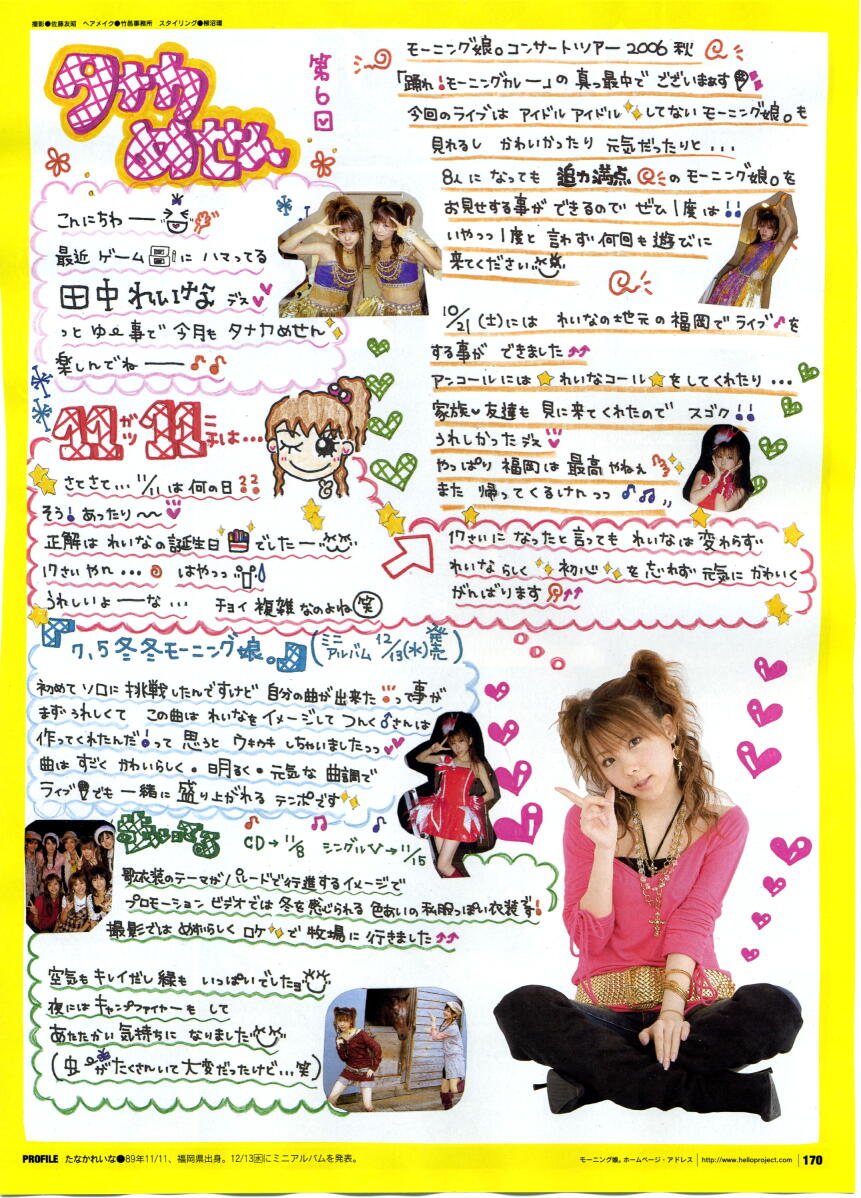 撮影●佐藤友昭 ヘアメイク●竹邑事務所 スタイリング●柳沼環
タナカ
めせん
第6回
こんにちわー
最近ゲームにハマってる
田中れいなデス
っとゆー事で今月もタナカめせん
楽しんでねー
11ガツ11ニチは…
さてさて… 11/11は何の日??
そう!あったり〜
正解はれいなの誕生日でしたー
17さいやん… はやっっ
うれしいよーな… チョイ複雑なのよね(笑)
モーニング娘。コンサートツアー2006秋
「踊れ!モーニングカレー」の真っ最中でございまぁす
今回のライブはアイドルアイドルしてないモーニング娘。も
見れるし かわいかったり 元気だったりと...
8人になっても迫力満点のモーニング娘。を
お見せする事ができるのでぜひ1度は!!
いやっっ1度と言わず何回も遊びに
来てください
10/21(土)には れいなの地元の福岡でライブ♪を
する事ができました↑↑
アンコールには☆れいなコール☆をしてくれたり...
家族♥友達も見に来てくれたのでスゴク!!
うれしかったデス
やっぱり福岡は最高やねぇ
また帰ってくるけんっっ♪♫
17さいになったと言っても れいなは変わらず
れいならしく初心を忘れず元気にかわいく
がんばります↑↑
『7.5冬冬モーニング娘。』(ミニアルバム12/13(水)発売)
初めてソロに挑戦したんですけど自分の曲が出来た!って事が
まずうれしくて この曲はれいなをイメージしてつんく♂さんは
作ってくれたんだ!って思うとウキウキしちゃいましたっっ
曲はすごくかわいらしく・明るく・元気な曲調で
ライブでも一緒に盛り上がれるテンポです
CD→11/8 シングルV→11/15
歌衣装のテーマがパレードで行進するイメージで
プロモーションビデオでは冬を感じられる色あいの私服っぽい衣装です!
撮影ではめずらしくロケで牧場に行きました↑↑
空気もキレイだし緑もいっぱいでしたョ
夜にはキャンプファイヤーもして
あたたかい気持ちになりました
(虫がたくさんいて大変だったけど...笑)
PROFILE たなかれいな●89年11/11、福岡県出身。12/13㊌にミニアルバムを発表。
モーニング娘。ホームページ・アドレス http://www.helloproject.com 170